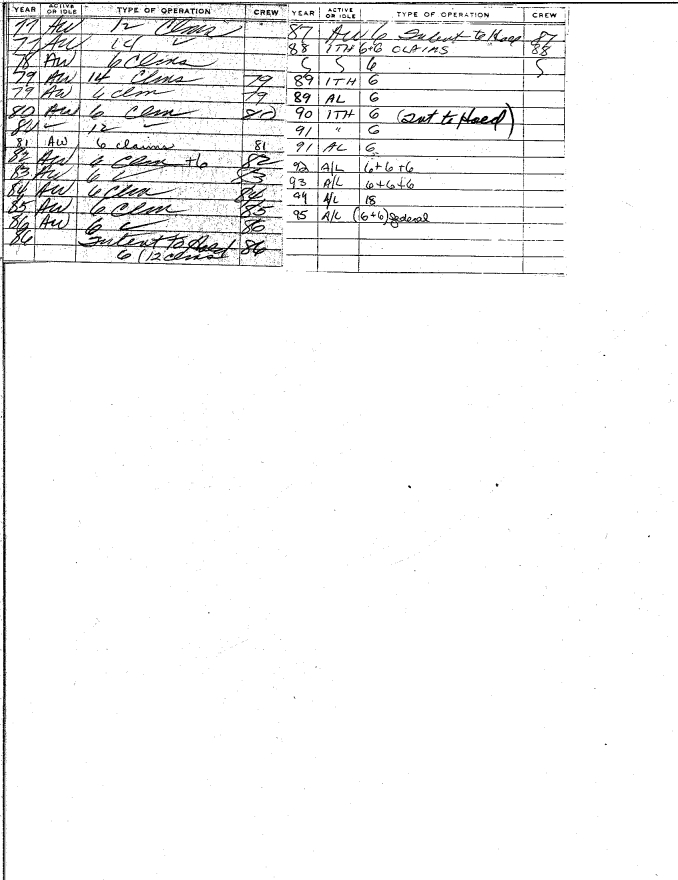 YEAR ACTIVE OR IDLE TYPE OF OPERATION CREW
77 AW 12 Clms
77 AW 14 ✓
78 AW 6 Clms
79 AW 14 Clms 79
79 AW 6 clm 79
80 AW 6 Clm 80
80 ✓ 12 ✓
81 AW 6 claims 81
82 AW 6 Clm +6 82
83 AW 6 ✓ 83
84 AW 6 Clm 84
85 AW 6 Clm 85
86 AW 6 ✓ 86
86 Intent To Hold 86
6 (12 clms)
YEAR ACTIVE OR IDLE TYPE OF OPERATION CREW
87 AW 6 Intent to Hold 87
88 ITH 6+6 CLAIMS 88
6
89 ITH 6
89 AL 6
90 ITH 6 (Int to Hold)
91 " 6
91 AL 6
92 A/L 6+6+6
93 A/L 6+6+6
94 A/L 18
95 A/L (6+6) federal